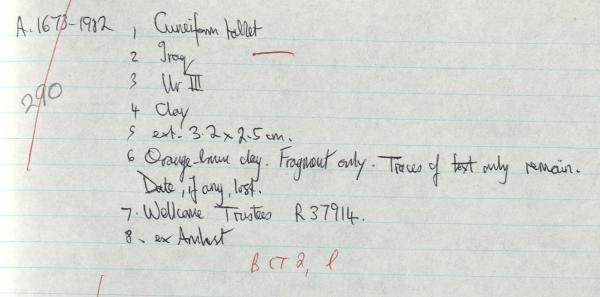 A. 1673-1982 1 Cuneiform tablet
2 Iraq
3 Ur III
290
4 Clay
5 ext. 3.2 x 2.5 cm.
6 Orange-brown clay. Fragment only. Traces of text only remain.
Date, if any, lost.
7. Wellcome Trustees R37914.
8. ex Amherst
BCT 2,